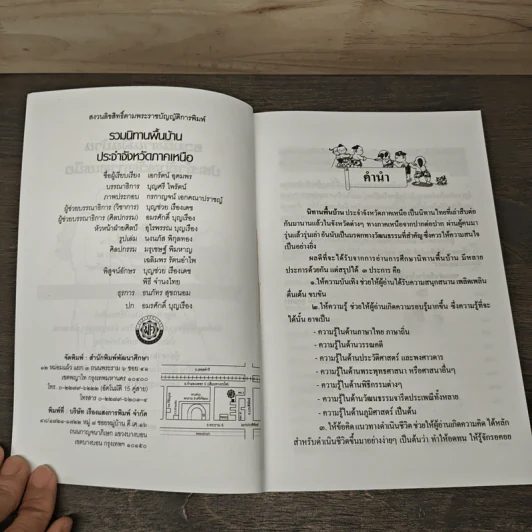 สงวนลิขสิทธิ์ตามพระราชบัญญัติการพิมพ์
รวมนิทานพื้นบ้าน
ประจำจังหวัดภาคเหนือ
ชื่อผู้เรียบเรียง เอกรัตน์ อุดมพร
บรรณาธิการ บุญศรี ไพรัตน์
ภาพประกอบ กรกาญจน์ เอกคณาปราชญ์
ผู้ช่วยบรรณาธิการ (วิชาการ) บุญช่วย เรืองเดช
ผู้ช่วยบรรณาธิการ (ศิลปกรรม) อมรศักดิ์ บุญเรือง
หัวหน้าฝ่ายศิลป์ สุไรพรรณ บุญเรือง
รูปเล่ม นงนภัส พิกุลทอง
ศิลปกรรม มรุเชษฐ์ พิมหาญ
เฉลิมพร รัตนอำไพ
พิสูจน์อักษร บุญช่วย เรืองเดช
พิธี จำนงไทย
ธุรการ ธนภัทร สุขถนอม
ปก อมรศักดิ์ บุญเรือง
จัดพิมพ์ : สำนักพิมพ์พัฒนาศึกษา
เขตพญาไท กรุงเทพมหานคร ๑๐๔๐๐
พิมพ์ที่ : บริษัท เรืองแสงการพิมพ์ จำกัด
ถนนกาญจนาภิเษก แขวงบางบอน
เขตบางบอน กรุงเทพฯ ๑๐๑๕๐
คำนำ
นิทานพื้นบ้าน ประจำจังหวัดภาคเหนือ เป็นนิทานไทยที่เล่าสืบต่อ
กันมานานแล้วในจังหวัดต่างๆ ทางภาคเหนือจากปากต่อปาก ผ่านผู้คนมา
รุ่นแล้วรุ่นเล่า อันนับเป็นมรดกทางวัฒนธรรมที่สำคัญ ซึ่งควรให้ความสนใจ
เป็นอย่างยิ่ง
ผลดีที่จะได้รับจากการอ่านการศึกษานิทานพื้นบ้าน มีหลาย
ประการด้วยกัน แต่สรุปได้ ๓ ประการ คือ
๑.ให้ความบันเทิง ช่วยให้ผู้อ่านได้รับความสนุกสนาน เพลิดเพลิน
ตื่นเต้น ขบขัน
๒.ให้ความรู้ ช่วยให้ผู้อ่านเกิดความรอบรู้มากขึ้น ซึ่งความรู้ที่จะ
ได้นั้น อาจเป็น
- ความรู้ในด้านภาษาไทย ภาษาถิ่น
- ความรู้ในด้านวรรณคดี
- ความรู้ในด้านประวัติศาสตร์ และพงศาวดาร
- ความรู้ในด้านพระพุทธศาสนา หรือศาสนาอื่นๆ
- ความรู้ในด้านพิธีกรรมต่างๆ
- ความรู้ในด้านวัฒนธรรมจารีตประเพณีทั้งหลาย
- ความรู้ในด้านภูมิศาสตร์ เป็นต้น
๓. ให้ข้อคิด แนวทางดำเนินชีวิต ช่วยให้ผู้อ่านเกิดความคิด ได้หลัก
สำหรับดำเนินชีวิตขึ้นมาอย่างง่ายๆ เป็นต้นว่า ทำให้อดทน ให้รู้จักรอคอย